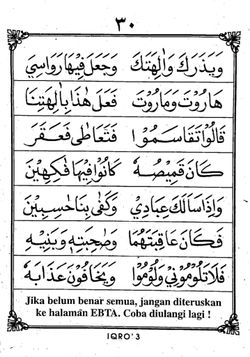 ٣٠
وَيَذَرَكَ وَاٰلِهَتَكَ وَجَعَلَ فِيهَا رَوَاسِيَ
هَارُوْتَ وَمَارُوْتَ فَعَلَ هٰذَا بِاٰلِهَتِنَا
قَالُوْا تَقَاسَمُوْا فَتَعَاطٰى فَعَقَرَ
كَانَ قَمِيْصُهُ كَانُوْا فِيْهَا فٰكِهِيْنَ
وَإِذَا سَاَلَكَ عِبَادِيْ وَكَفٰى بِنَا حٰسِبِيْنَ
فَكَانَ عَاقِبَتَهُمَا وَصٰحِبَتِهٖ وَبَنِيْهِ
فَلَا تَلُوْمُوْنِيْ وَلُوْمُوْا وَيَخَافُوْنَ عَذَابَهٗ
Jika belum benar semua, jangan diteruskan
ke halamân EBTA. Coba diulangi lagi !
IQRO' 3